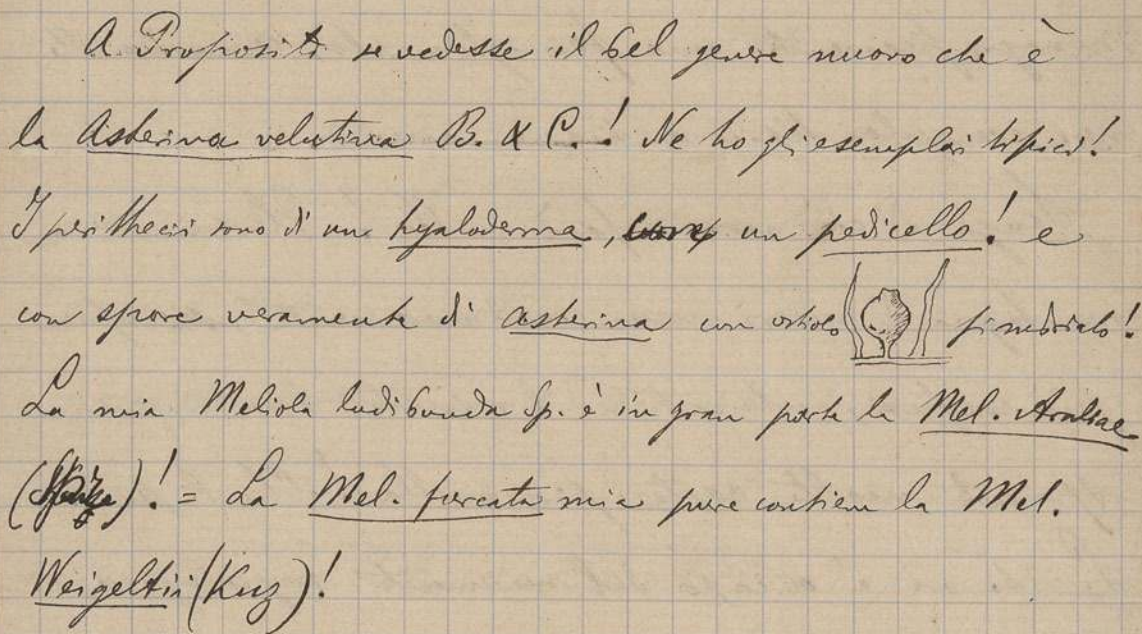 A Proposito se vedesse il bel genere nuovo che è
la Asterina velutina B. & C.! Ne ho gli esemplari tipici!
I peritheci sono di un hyaloderma, un pedicello! e
con spore veramente di asterina con ostiolo fimbriato!
La mia Meliola ludibunda Sp. è in gran parte la Mel. Araliae
( )! = La Mel. furcata mia pure contiene la Mel.
Weigeltii (Kuz)!